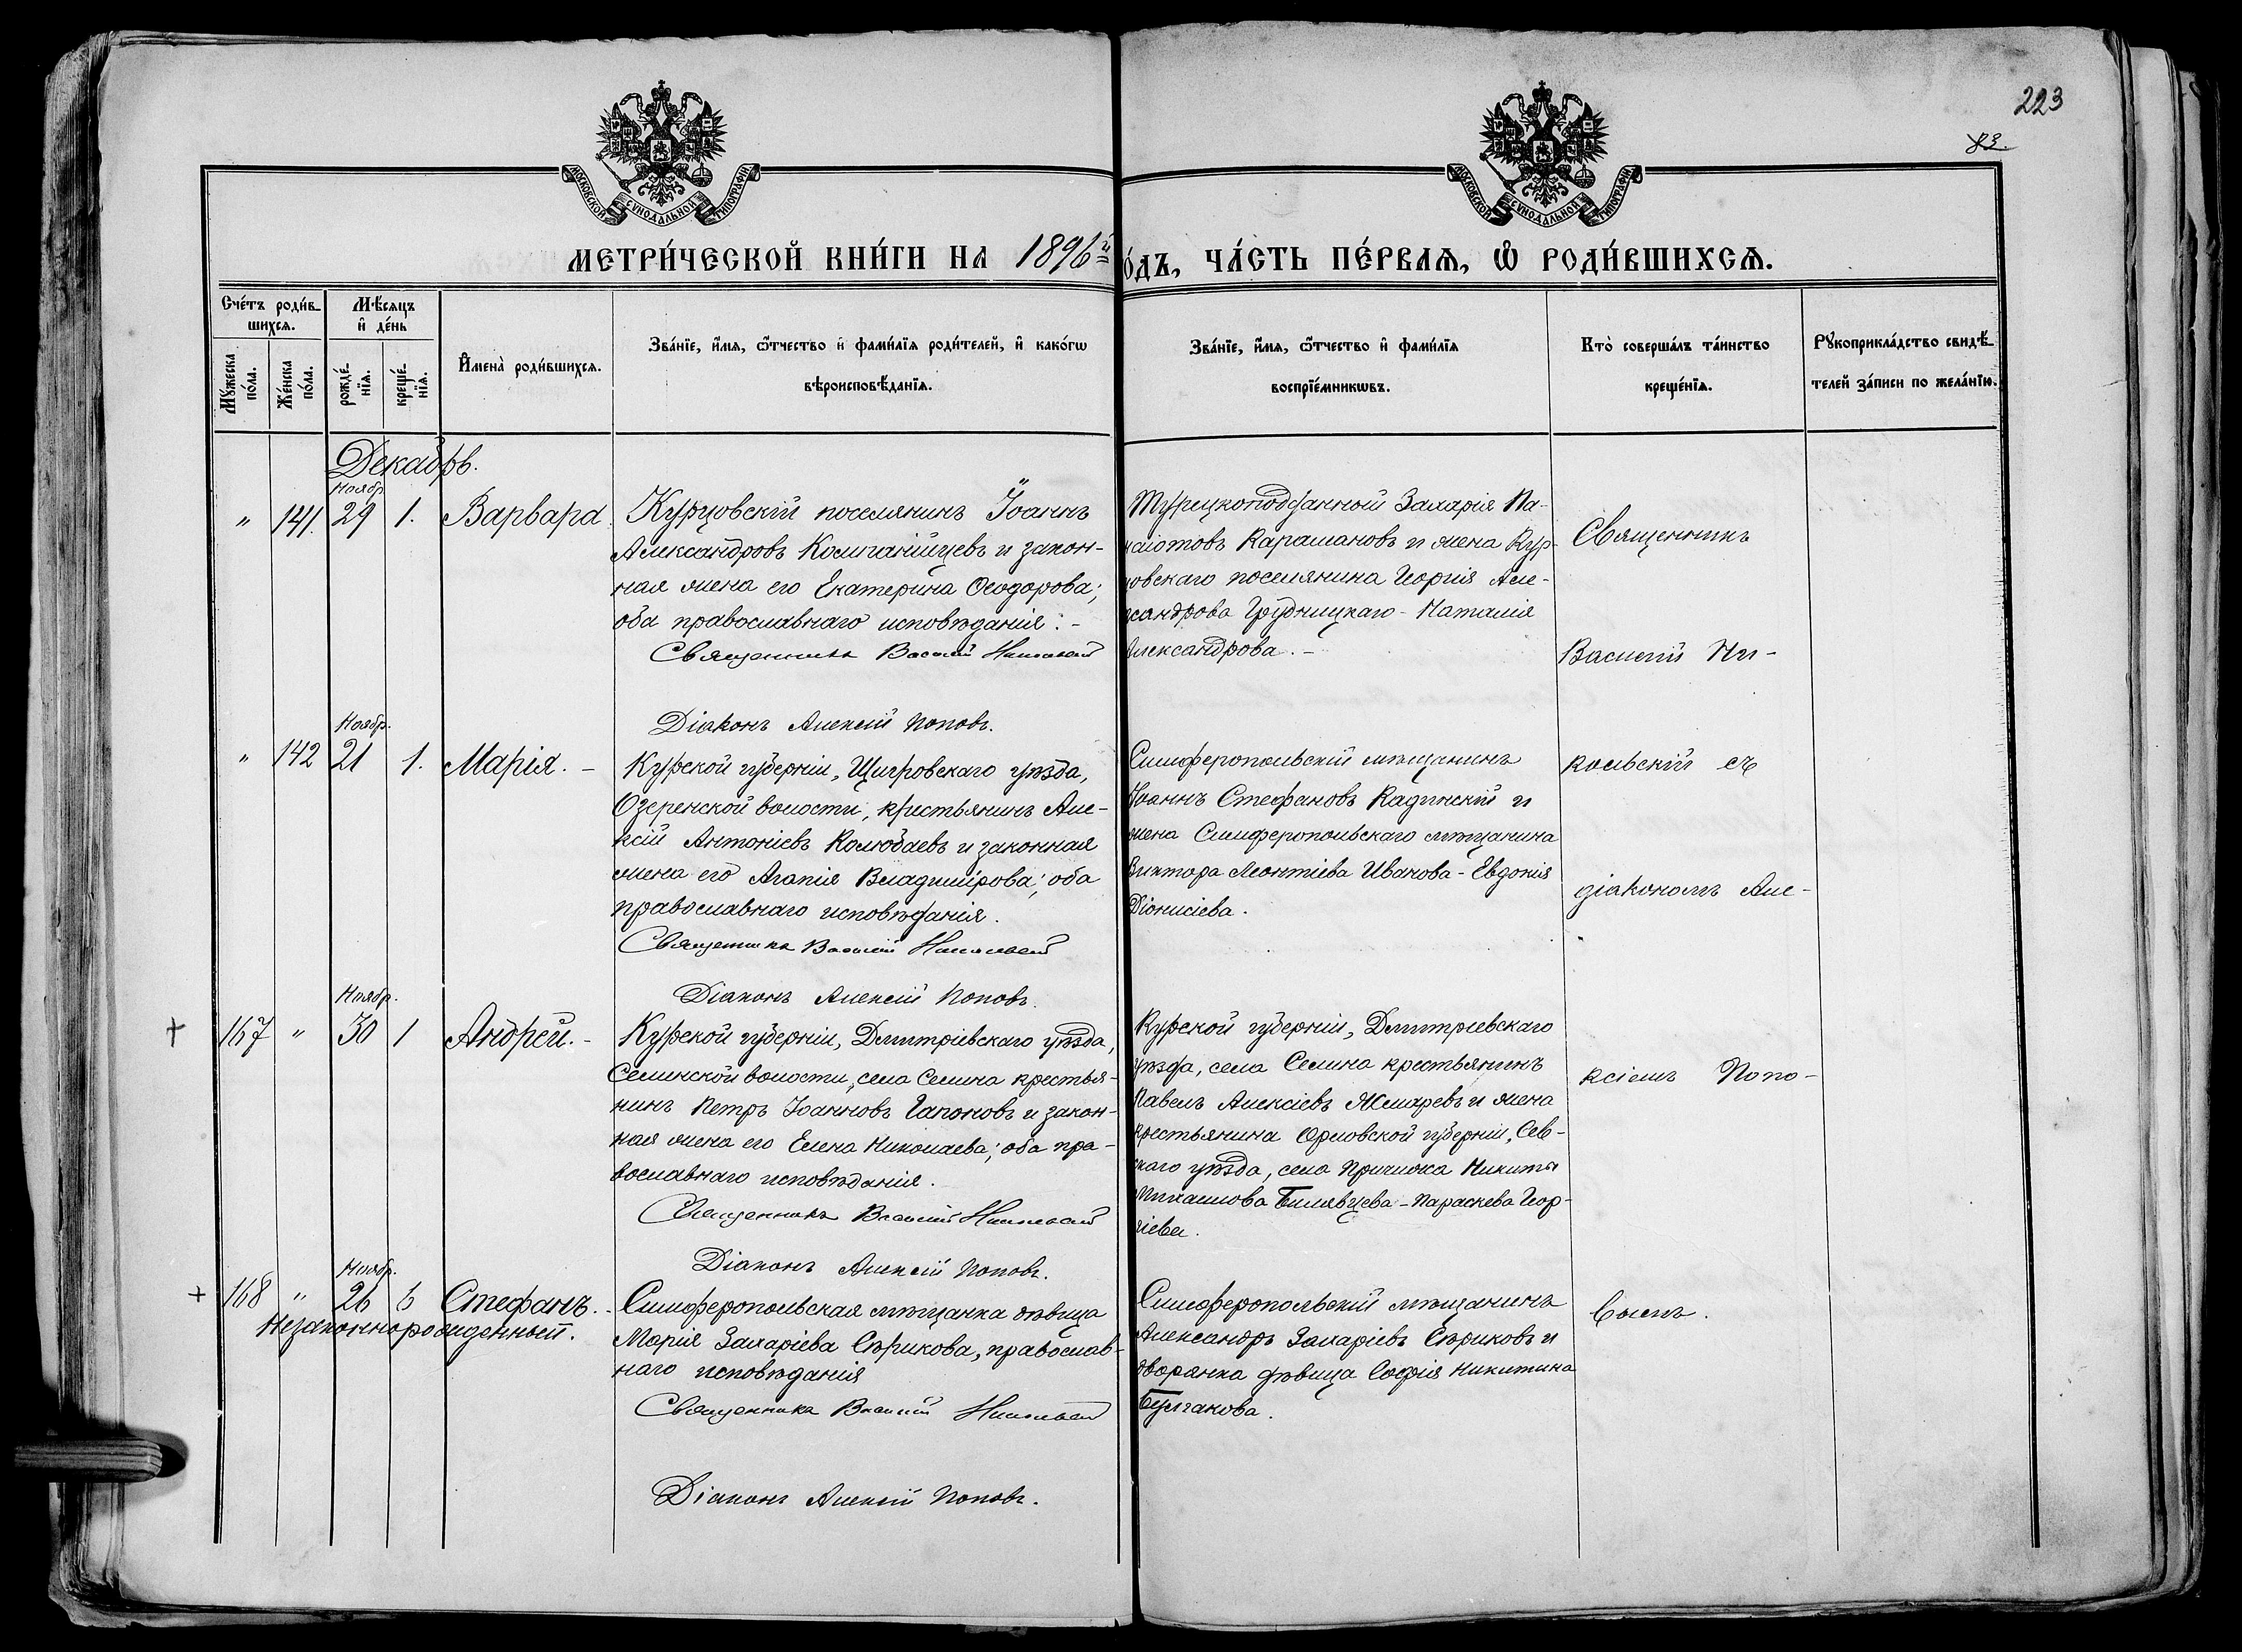 223
83.
МОСКОВСКОЙ СѴНОДАЛЬНОЙ ТИПОГРАФІИ
МОСКОВСКОЙ СѴНОДАЛЬНОЙ ТИПОГРАФІИ
МЕТРИ́ЧЕСКОЙ КНИ́ГИ НА 1896й
о́дъ, ЧА́СТЬ ПЕ́РВАѦ, Ѡ҆ РОДИ́ВШИХСѦ.
Сче́тъ роди́в-
шихсѧ.
Мꙋ́жеска
по́ла.
Же́нска
по́ла.
Мѣ́сѧцъ
и҆ де́нь
рожде́-
нїѧ.
креще́-
нїѧ.
И҆мена̀ роди́вшихсѧ.
Зва́нїе, и҆́мѧ, ѻ҆́тчество и҆ фами́лїѧ роди́телей, и҆ како́гѡ
вѣроисповѣ́данїѧ.
Зва́нїе, и҆́мѧ, ѻ҆́тчество и҆ фами́лїѧ
воспрїе́мникѡвъ.
Кто̀ соверша́лъ та́инство
креще́нїѧ.
Рꙋкоприкла́дство свидѣ́-
телей за́писи по жела́нїю.
Декабрь.
Ноябр
" 141. 29 1. Варвара
Курцовскій поселянинъ Іоаннъ
Александровъ Компанійцевъ и закон-
ная жена его Екатерина Ѳеодорова;
оба православнаго исповѣданія.-
Священникъ Василій Никольскій
Діаконъ Алексій Поповъ.
Турецкоподданный Захарія Па-
наіотовъ Карамановъ и жена Кур-
цовскаго поселянина Георгія Але-
ксандрова Грудницкаго - Наталія
Александрова.-
Ноябр.
" 142 21 1. Марія.-
Курской губерніи, Щигровскаго уѣзда,
Озеренской волости, крестьянинъ Але-
ксій Антоніевъ Колюбаевъ и законная
жена его Агапія Владимірова; оба
православнаго исповѣданія.
Священникъ Василій Никольскій
Діаконъ Алексій Поповъ.
Симферопольскій мѣщанинъ
Іоаннъ Стефановъ Кадинскій и
жена Симферопольскаго мѣщанина
Виктора Леонтіева Иванова - Евдокія
Діонисіева.
Ноябр.
† 167 " 30 1 Андрей.-
Курской губерніи, Дмитріевскаго уѣзда,
Селинской волости, села Селина крестья-
нинъ Петръ Іоанновъ Гапоновъ и закон-
ная жена его Елена Николаева; оба пра-
вославнаго исповѣданія.
Священникъ Василій Никольскій
Діаконъ Алексій Поповъ.
Курской губерніи, Дмитріевскаго
уѣзда, села Селина крестьянинъ
Павелъ Алексіевъ Жмаревъ и жена
крестьянина Орловской губерніи, Сев-
скаго уѣзда, села Никиты
Михаилова Билявцева - Параскева Геор-
гіева.
Ноябр.
+ 168 " 26 6 Стефанъ.-
Незаконнорожденный.
Симферопольская мѣщанка дѣвица
Марія Захаріева Сѣрикова, православ-
наго исповѣданія
Священникъ Василій Никольскій
Діаконъ Алексій Поповъ.
Симферопольскій мѣщанинъ
Александръ Захаріевъ Сѣриковъ и
дворянка дѣвица Софія Никитина
Булгакова.
Священникъ
Василій Ни-
кольскій съ
діакономъ Але-
ксіемъ Попо-
вымъ.